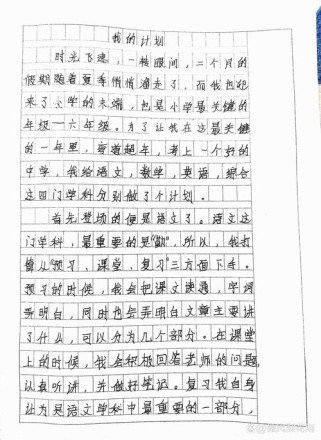 我的计划
时光飞逝，一转眼间，二个月的
假期随着夏季悄悄溜走了，而我也迎
来了小学的末端，也是小学最关键的
年级一六年级。为了让我在这最关键
的一年里，弯道超车，考上一个好的
中学，我给语文，数学，英语，综合
这四门学科分别做了个计划。
首先登场的便是语文了。语文这
门学科，最重要的是“勤”，所以，我打
算从“预习、课堂，复习”三方面下手。
预习的时候，我会把课文读通，字词
弄明白，同时也会弄明白文章主要讲
了什么，可以分为几个部分。在课堂
上的时候，我会积极回答老师的问题，
认真听讲，并做好笔记。复习我自身
认为是语文学科中最重要的一部分，